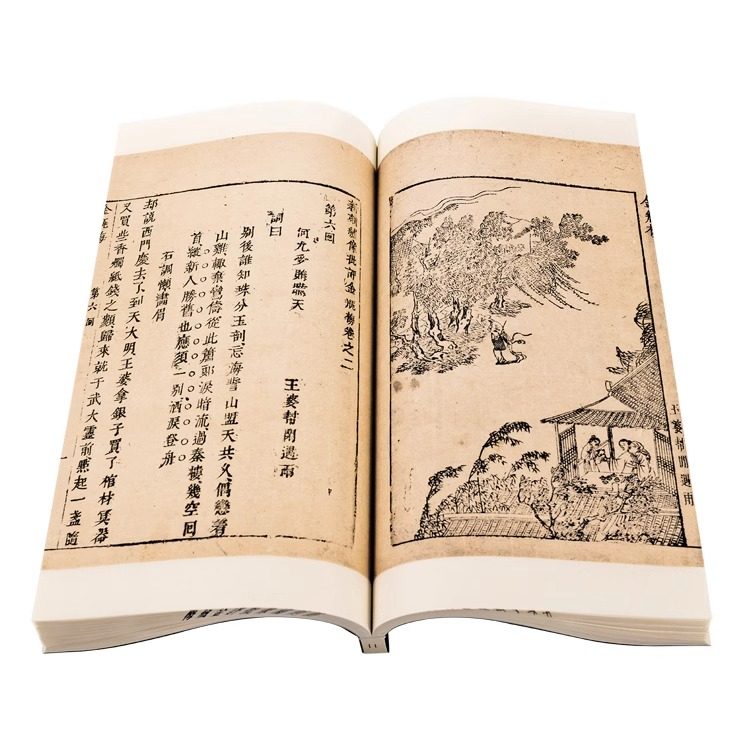 金瓶梅
王婆幫閒遇雨
新刻繡像批評金瓶梅卷之二
第六回
何九受賄瞞天
王婆幇閒遇雨
詞曰
別後誰知珠分玉剖忘海誓山盟天共久偶戀着
山雞輒棄鸞儔從此蕭郎淚暗流過秦樓幾空回
首縱新人勝舊也應須一別洒淚登舟
右調懶畫眉
却說西門慶去了到天大明王婆拿銀子買了棺材冥器
又買些香燭紙錢之類歸來就于武大靈前點起一盞隨
金瓶梅
第六回
11